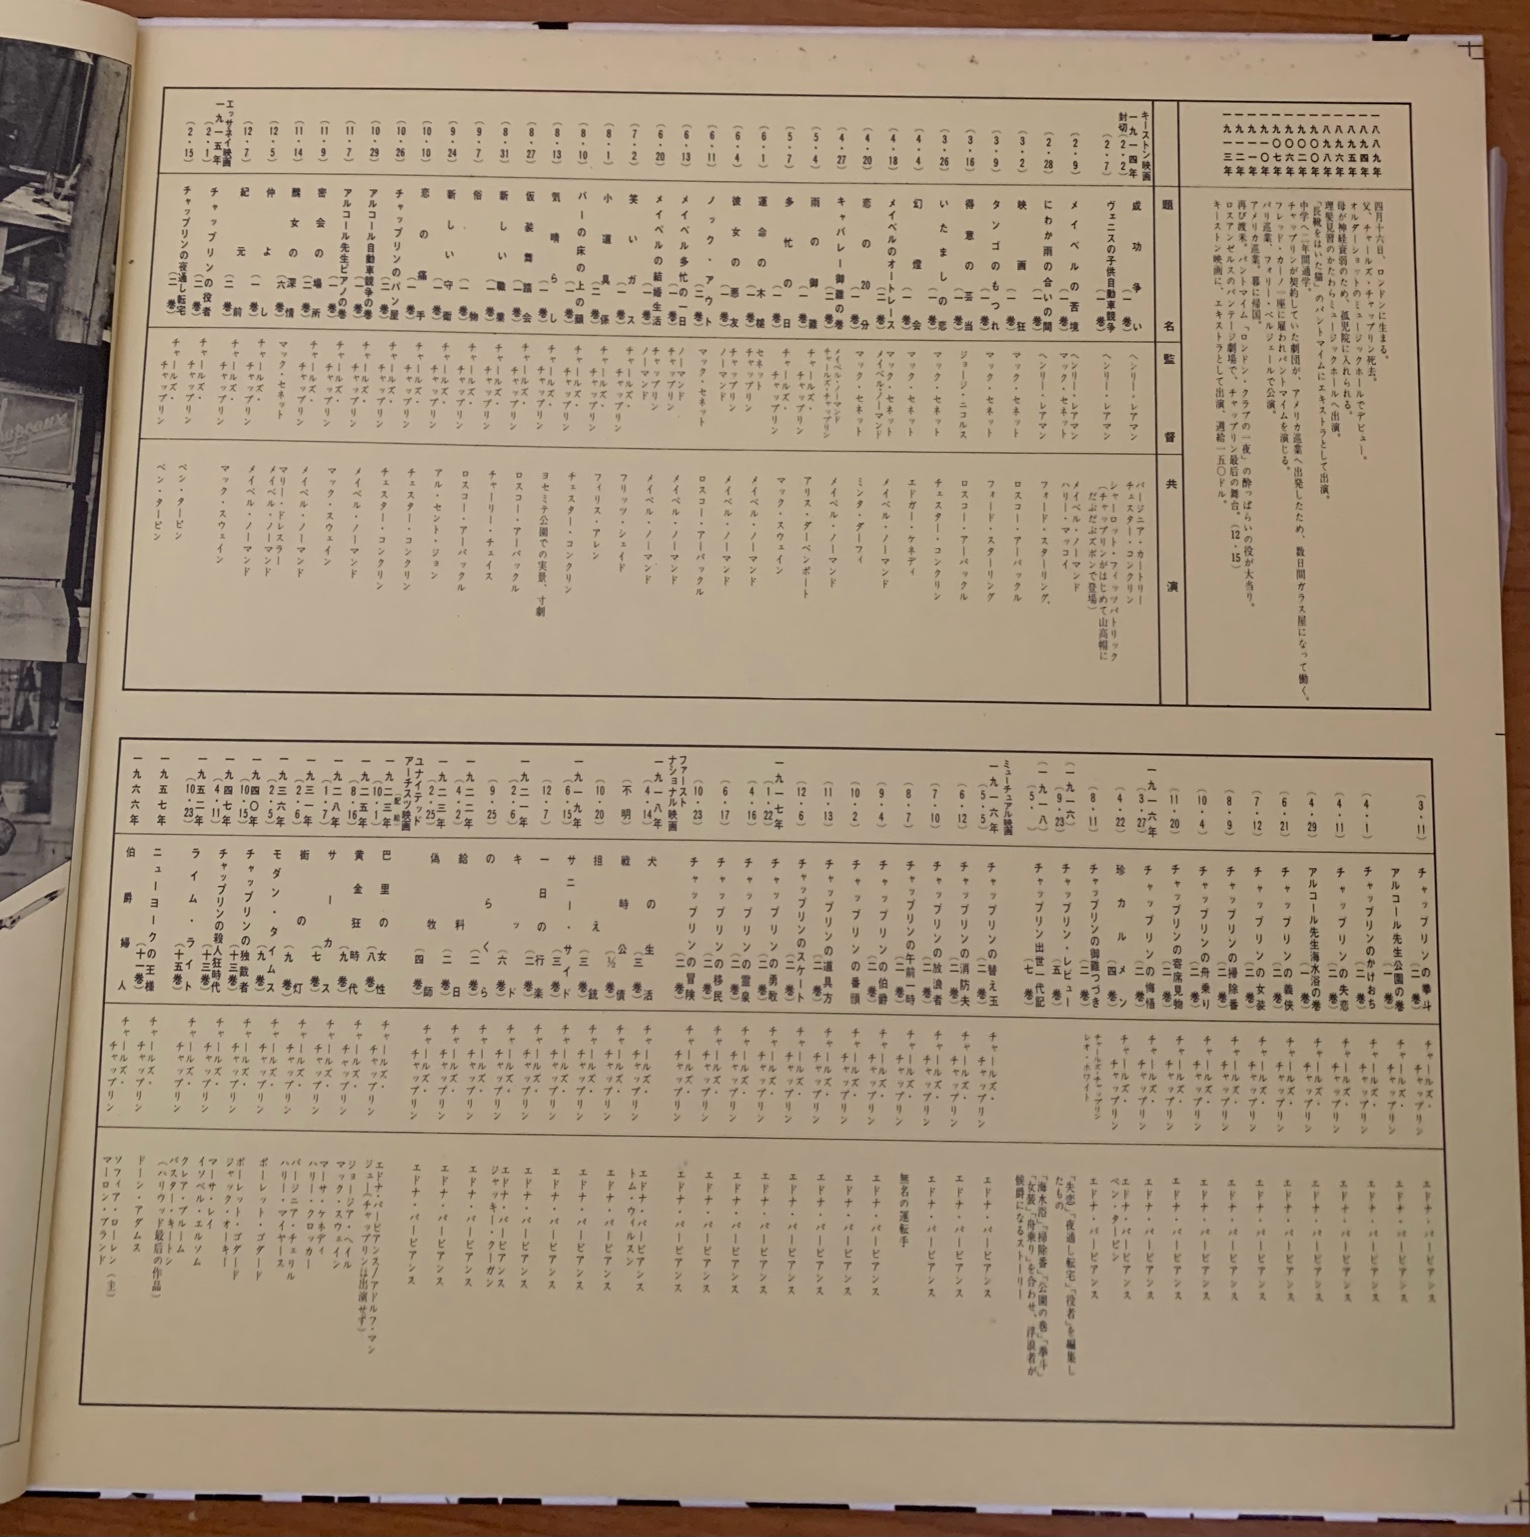 一八八九年 四月十六日、ロンドンに生まる。
一八九四年 父、チャールズ・チャップリン死去。
一八九五年 オルダーショットのミュージックホールでデビュー。
一八九六年 母が神経衰弱のため、孤児院に入れられる。
一八九八年 理髪見習のかたわらミュージックホールへ出演。
一九〇〇年 「長靴をはいた猫」のパントマイムにエキストラとして出演。
一九〇二年 中学へ二年間通学。
一九〇六年 チャップリンが契約していた劇団が、アメリカ巡業へ出発したため、数日間ガラス屋になって働く。
一九〇七年 フレッド・カーノ一座に雇われパントマイムを演じる。
一九一〇年 パリ巡業、フォリー・ベルジェールで公演。
一九一一年 アメリカ巡業、暮に帰国。
一九一二年 再び渡米。パントマイム「ロンドン・クラブの一夜」の酔っぱらいの役が大当り。
一九一三年 ロスアンゼルスのパンテージ劇場で、チャップリン最后の舞台。(12・15)
キーストン映画に、エキストラとして出演、週給一五〇ドル。
題名 監督 共演
キーストン映画
一九一四年
封切(2・2) 成功争い(一巻) ヘンリー・レアマン バージニア・カートリー
チェスター・コンクリン
(2・7) ヴェニスの子供自動車競争(一巻) ヘンリー・レアマン シャーロット・フィッツパトリック
(チャップリンがはじめて山高帽に
だぶだぶズボンで登場)
(2・9) メイベルの苦境(一巻) ヘンリー・レアマン マック・セネット メイベル・ノーマンド
ハリー・マッコイ
(2・28) にわか雨の合いの間(一巻) ヘンリー・レアマン フォード・スターリング、
(3・2) 映画狂(一巻) マック・セネット ロスコー・アーバックル
(3・9) タンゴのもつれ(一巻) マック・セネット フォード・スターリング
(3・16) 得意の芸当(一巻) ジョージ・ニコルス ロスコー・アーバックル
(3・26) いたましの恋(一巻) マック・セネット チェスター・コンクリン
(4・4) 幻燈会(一巻) マック・セネット エドガー・ケネディ
(4・18) メイベルのオートレース(二巻) マック・セネット メイベル・ノーマンド メイベル・ノーマンド
(4・20) 恋の20分(一巻) マック・セネット ミンタ・ダーフィ
(4・27) キャバレー御難の巻(二巻) メイベル・ノーマンド チャールズ・チャップリン メイベル・ノーマンド
(5・4) 雨の御難(一巻) チャールズ・チャップリン アリス・ダーベンポート
(5・7) 多忙の日(一巻) チャールズ・チャップリン マック・スウェイン
(6・1) 運命の木槌(一巻) セネット チャップリン ノーマンド メイベル・ノーマンド
(6・4) 彼女の悪友(一巻) チャップリン ノーマンド メイベル・ノーマンド
(6・11) ノック・アウト(二巻) マック・セネット ロスコー・アーバックル
(6・13) メイベル多忙の一日(一巻) ノーマンド チャップリン メイベル・ノーマンド
(6・20) メイベルの結婚生活(一巻) チャップリン ノーマンド メイベル・ノーマンド
(7・2) 笑いガス(一巻) チャールズ・チャップリン フリッツ・シェイド
(8・1) 小道具係(二巻) チャールズ・チャップリン フィリス・アレン
(8・10) バーの床の上の顔(一巻) チャールズ・チャップリン チェスター・コンクリン
(8・13) 気晴らし(一巻) チャールズ・チャップリン ヨセミテ公園での実景、寸劇
(8・27) 仮装舞踏会(一巻) チャールズ・チャップリン ロスコー・アーバックル
(8・31) 新しい職業(一巻) チャールズ・チャップリン チャーリー・チェイス
(9・7) 俗物(一巻) チャールズ・チャップリン ロスコー・アーバックル
(9・24) 新しい守衛(一巻) チャールズ・チャップリン アル・セント・ジョン
(10・10) 恋の痛手(一巻) チャールズ・チャップリン チェスター・コンクリン
(10・26) チャップリンのパン屋(二巻) チャールズ・チャップリン チェスター・コンクリン
(10・29) アルコール自動車競争の巻(一巻) チャールズ・チャップリン メイベル・ノーマンド
(11・7) アルコール先生ピアノの巻(一巻) チャールズ・チャップリン マック・スウェイン
(11・9) 密会の場所(二巻) チャールズ・チャップリン メイベル・ノーマンド
(11・14) 醜女の深情(六巻) マック・セネット マリー・ドレスラー
メイベル・ノーマンド
(12・5) 仲よし(一巻) チャールズ・チャップリン メイベル・ノーマンド
(12・7) 紀元前(二巻) チャールズ・チャップリン マック・スウェイン
エッサネイ映画
一九一五年
(2・1) チャップリンの役者(二巻) チャールズ・チャップリン ベン・タービン
(2・15) チャップリンの夜通し転宅(二巻) チャールズ・チャップリン ベン・タービン
(3・11) チャップリンの拳斗(二巻) チャールズ・チャップリン エドナ・パービアンス
アルコール先生公園の巻(一巻) チャールズ・チャップリン エドナ・パービアンス
(4・1) チャップリンのかけおち(二巻) チャールズ・チャップリン エドナ・パービアンス
(4・11) チャップリンの失恋(二巻) チャールズ・チャップリン エドナ・パービアンス
(4・29) アルコール先生海水浴の巻(一巻) チャールズ・チャップリン エドナ・パービアンス
(6・21) チャップリンの義侠(二巻) チャールズ・チャップリン エドナ・パービアンス
(7・12) チャップリンの女装(二巻) チャールズ・チャップリン エドナ・パービアンス
(8・9) チャップリンの掃除番(二巻) チャールズ・チャップリン エドナ・パービアンス
(10・4) チャップリンの舟乗り(二巻) チャールズ・チャップリン エドナ・パービアンス
(11・20) チャップリンの寄席見物(二巻) チャールズ・チャップリン エドナ・パービアンス
一九一六年
(3・27) チャップリンの悔悟(二巻) チャールズ・チャップリン エドナ・パービアンス
(4・22) 珍カルメン(四巻) チャールズ・チャップリン エドナ・パービアンス
ベン・タービン
(8・11) チャップリンの御難つづき(二巻) チャールズ・チャップリン レオ・ホワイト エドナ・パービアンス
(一九一六)
(9・23) チャップリン・レビュー(五巻) 「失恋」「夜通し転宅」「役者」を編集し
たもの
(一九一八)
(5・) チャップリン出世一代記(七巻) 「海水浴」「掃除番」「公園の巻」「拳斗」
「女装」「舟乗り」を合わせ、浮浪者が
候爵になるストーリー
ミューチュアル映画
一九一六年
(5・5) チャップリンの替え玉(二巻) チャールズ・チャップリン エドナ・パービアンス
(6・12) チャップリンの消防夫(二巻) チャールズ・チャップリン エドナ・パービアンス
(7・10) チャップリンの放浪者(二巻) チャールズ・チャップリン エドナ・パービアンス
(8・7) チャップリンの午前一時(二巻) チャールズ・チャップリン 無名の運転手
(9・4) チャップリンの伯爵(二巻) チャールズ・チャップリン エドナ・パービアンス
(10・2) チャップリンの番頭(二巻) チャールズ・チャップリン エドナ・パービアンス
(11・13) チャップリンの道具方(二巻) チャールズ・チャップリン エドナ・パービアンス
(12・6) チャップリンのスケート(二巻) チャールズ・チャップリン エドナ・パービアンス
一九一七年
(1・22) チャップリンの勇敢(二巻) チャールズ・チャップリン エドナ・パービアンス
(4・16) チャップリンの霊泉(二巻) チャールズ・チャップリン エドナ・パービアンス
(6・17) チャップリンの移民(二巻) チャールズ・チャップリン エドナ・パービアンス
(10・23) チャップリンの冒険(二巻) チャールズ・チャップリン エドナ・パービアンス
ファースト
ナショナル映画
一九一八年
(4・14) 犬の生活(三巻) チャールズ・チャップリン エドナ・パービアンス
トム・ウィルスン
(不明) 戦時公債(½巻) チャールズ・チャップリン エドナ・パービアンス
(10・20) 担え銃(三巻) チャールズ・チャップリン エドナ・パービアンス
一九一九年
(6・15) サニー・サイド(三巻) チャールズ・チャップリン エドナ・パービアンス
(12・7) 一日の行楽(二巻) チャールズ・チャップリン エドナ・パービアンス
一九二一年
(2・6) キッド(六巻) チャールズ・チャップリン エドナ・パービアンス
ジャッキー・クーガン
(9・25) のらくら(二巻) チャールズ・チャップリン エドナ・パービアンス
一九二二年
(4・2) 給料日(二巻) チャールズ・チャップリン エドナ・パービアンス
一九二三年
(2・25) 偽牧師(四巻) チャールズ・チャップリン エドナ・パービアンス
ユナイテッド
アーチスツ映画
(配給)
一九二三年
(10・1) 巴里の女性(八巻) チャールズ・チャップリン エドナ・パービアンス/アドルフ・マン
ジュー(チャップリンは出演せず)
一九二五年
(8・16) 黄金狂時代(九巻) チャールズ・チャップリン ジョージア・ヘイル
マック・スウェイン
一九二八年
(1・7) サーカス(七巻) チャールズ・チャップリン マーサ・ケネディ
ハリー・クロッカー
一九三一年
(2・6) 街の灯(九巻) チャールズ・チャップリン バージニア・チェリル
ハリー・マイヤース
一九三六年
(2・5) モダン・タイムス(九巻) チャールズ・チャップリン ポーレット・ゴダード
一九四〇年
(10・15) チャップリンの独裁者(十三巻) チャールズ・チャップリン ポーレット・ゴダード
ジャック・オーキー
一九四七年
(4・11) チャップリンの殺人狂時代(十三巻) チャールズ・チャップリン マーサ・レイ
イソベル・エルソム
一九五二年
(10・23) ライム・ライト(十五巻) チャールズ・チャップリン クレア・ブルーム
バスター・キートン
(ハリウッド最后の作品)
一九五七年 ニューヨークの王様(十一巻) チャールズ・チャップリン ドーン・アダムス
一九六六年 伯爵婦人 チャールズ・チャップリン ソフィア・ローレン
マーロン・ブランド(主)